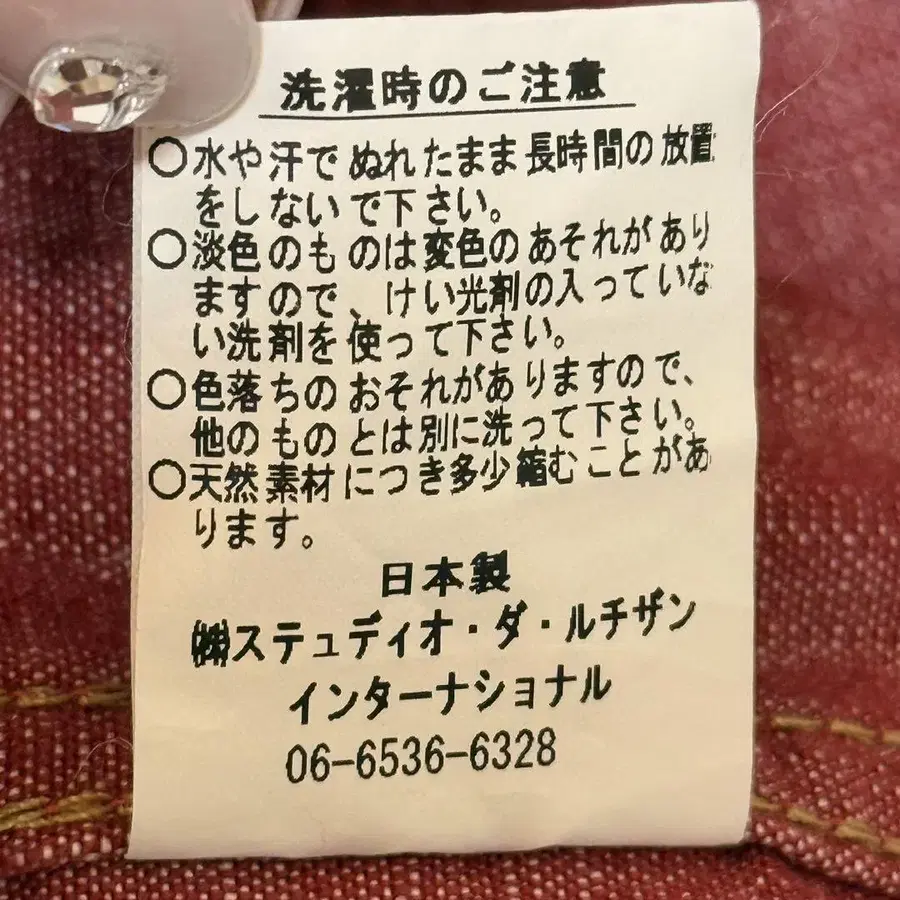 洗濯時のご注意
○水や汗でぬれたまま長時間の放置
をしないで下さい。
○淡色のものは変色のあそれがあり
ますので、けい光剤の入っていな
い洗剤を使って下さい。
○色落ちのおそれがありますので、
他のものとは別に洗って下さい。
○天然素材につき多少縮むことがあ
ります。
日本製
㈱ステュディオ・ダ・ルチザン
インターナショナル
06-6536-6328